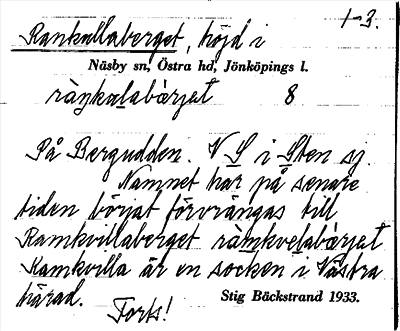 1-3.
Rankullaberget, höjd i
Näsby sn, Östra hd, Jönköpings l.
ràŋkulabærjet 8
På Bergudden. V S i Sten sj.
Namnet har på senare
tiden börjat förvrängas till
Ramkvillaberget ràmkvelabærjet
Ramkvilla är en socken i Västra
härad.
Stig Bäckstrand 1933.
Forts!